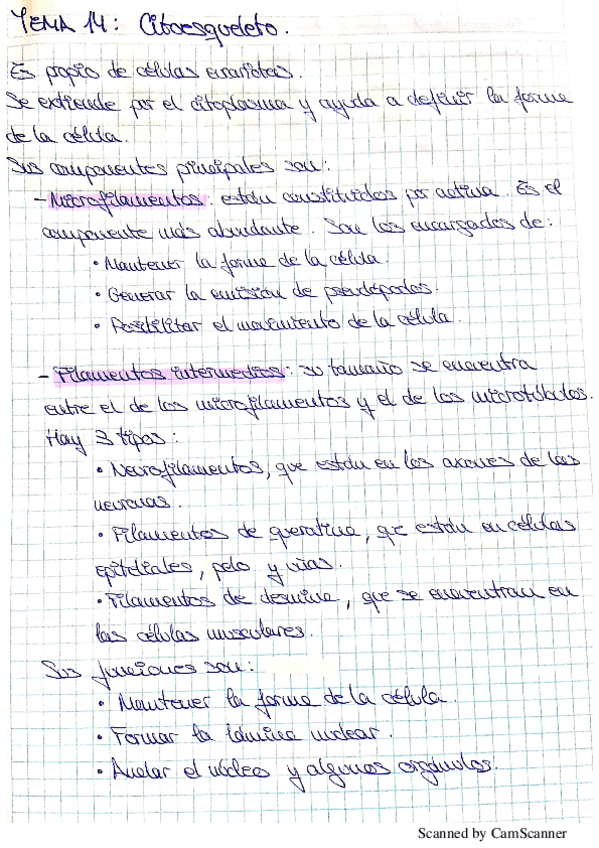 TEMA 14: Citoesqueleto.
Es propio de células eucariotas.
Se extiende por el citoplasma y ayuda a definir la forma
de la célula.
Sus componentes principales son:
- Microfilamentos: están constituidos por actina. Es el
componente más abundante. Son los encargados de:
• Mantener la forma de la célula.
• Generar la emisión de pseudópodos.
• Posibilitar el movimiento de la célula.
- Filamentos intermedios: su tamaño se encuentra
entre el de los microfilamentos y el de los microtúbulos.
Hay 3 tipos:
• Neurofilamentos, que están en los axones de las
neuronas.
• Filamentos de queratina, que están en células
epiteliales, pelo y uñas.
• Filamentos de desmina, que se encuentran en
las células musculares.
Sus funciones son:
• Mantener la forma de la célula.
• Formar la lámina nuclear.
• Anclar el núcleo y algunos orgánulos.
Scanned by CamScanner